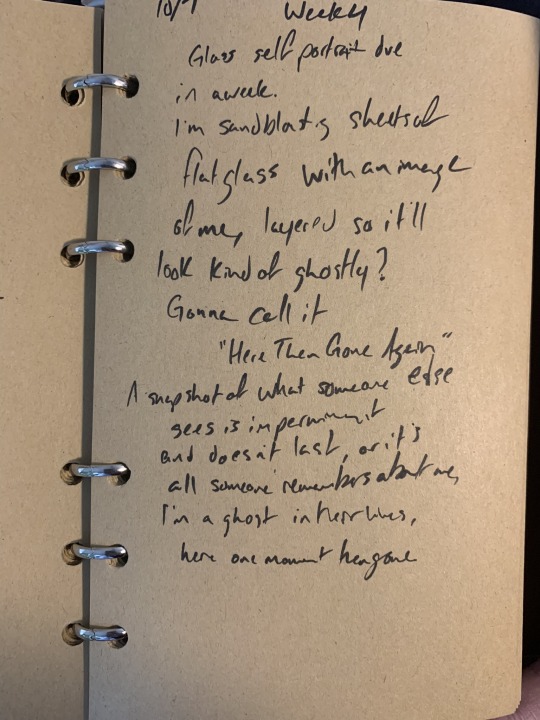 10/7 Weekly
Glass self portrait due
in a week.
I'm sandblasting sheets of
flat glass with an image
of me, layered so it'll
look kind of ghostly?
Gonna call it
"Here Then Gone Again"
A snapshot of what someone else
sees is impermanent
and doesn't last, or it's
all someone remembers about me,
I'm a ghost in their lives,
here one moment then gone